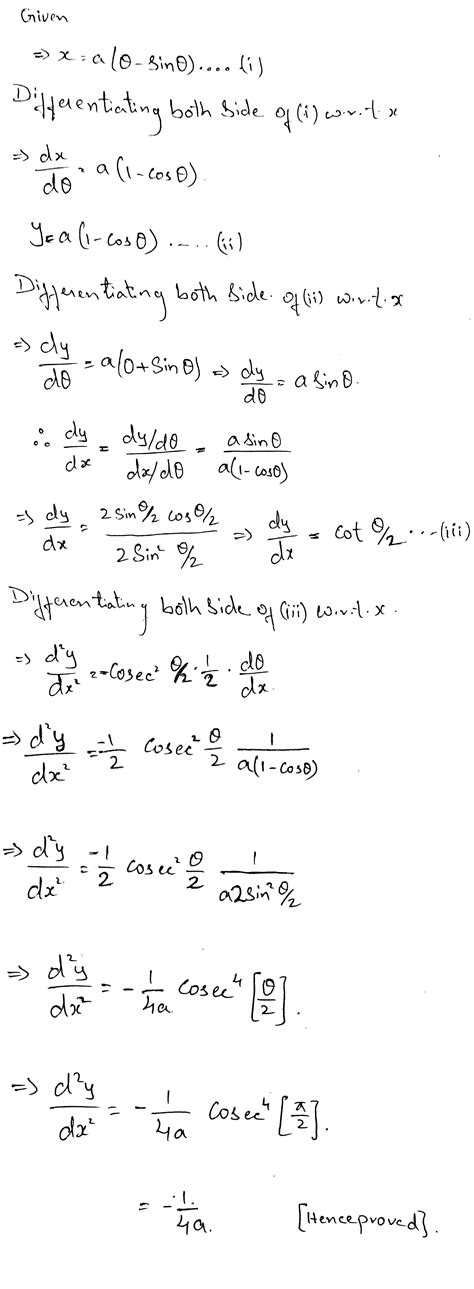 Given
⇒ x = a(θ - Sinθ).... (i)
Differentiating both Side of (i) w.r.t x
⇒ dx/dθ = a(1 - cosθ).
y = a(1 - cosθ) ..... (ii)
Differentiating both Side. of (ii) w.r.t. x
⇒ dy/dθ = a(0 + Sinθ) ⇒ dy/dθ = a Sinθ.
∴ dy/dx = (dy/dθ)/(dx/dθ) = (a Sinθ)/(a(1 - cosθ))
⇒ dy/dx = (2 Sin θ/2 cos θ/2)/(2 Sin² θ/2) ⇒ dy/dx = cot θ/2 ... (iii)
Differentiating both Side of (iii) w.r.t. x.
⇒ d²y/dx² = -Cosec² θ/2 · 1/2 · dθ/dx
⇒ d²y/dx² = -1/2 Cosec² θ/2 1/(a(1 - cosθ))
⇒ d²y/dx² = -1/2 Cosec² θ/2 1/(a2Sin² θ/2)
⇒ d²y/dx² = - 1/4a Cosec⁴ [θ/2].
⇒ d²y/dx² = - 1/4a Cosec⁴ [π/2].
= - 1/4a. [Hence proved].